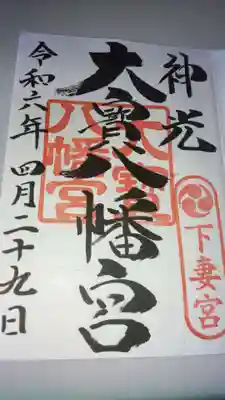 神光
下妻宮
大寳八幡宮
大寳
八幡宮
令和六年四月二十九日